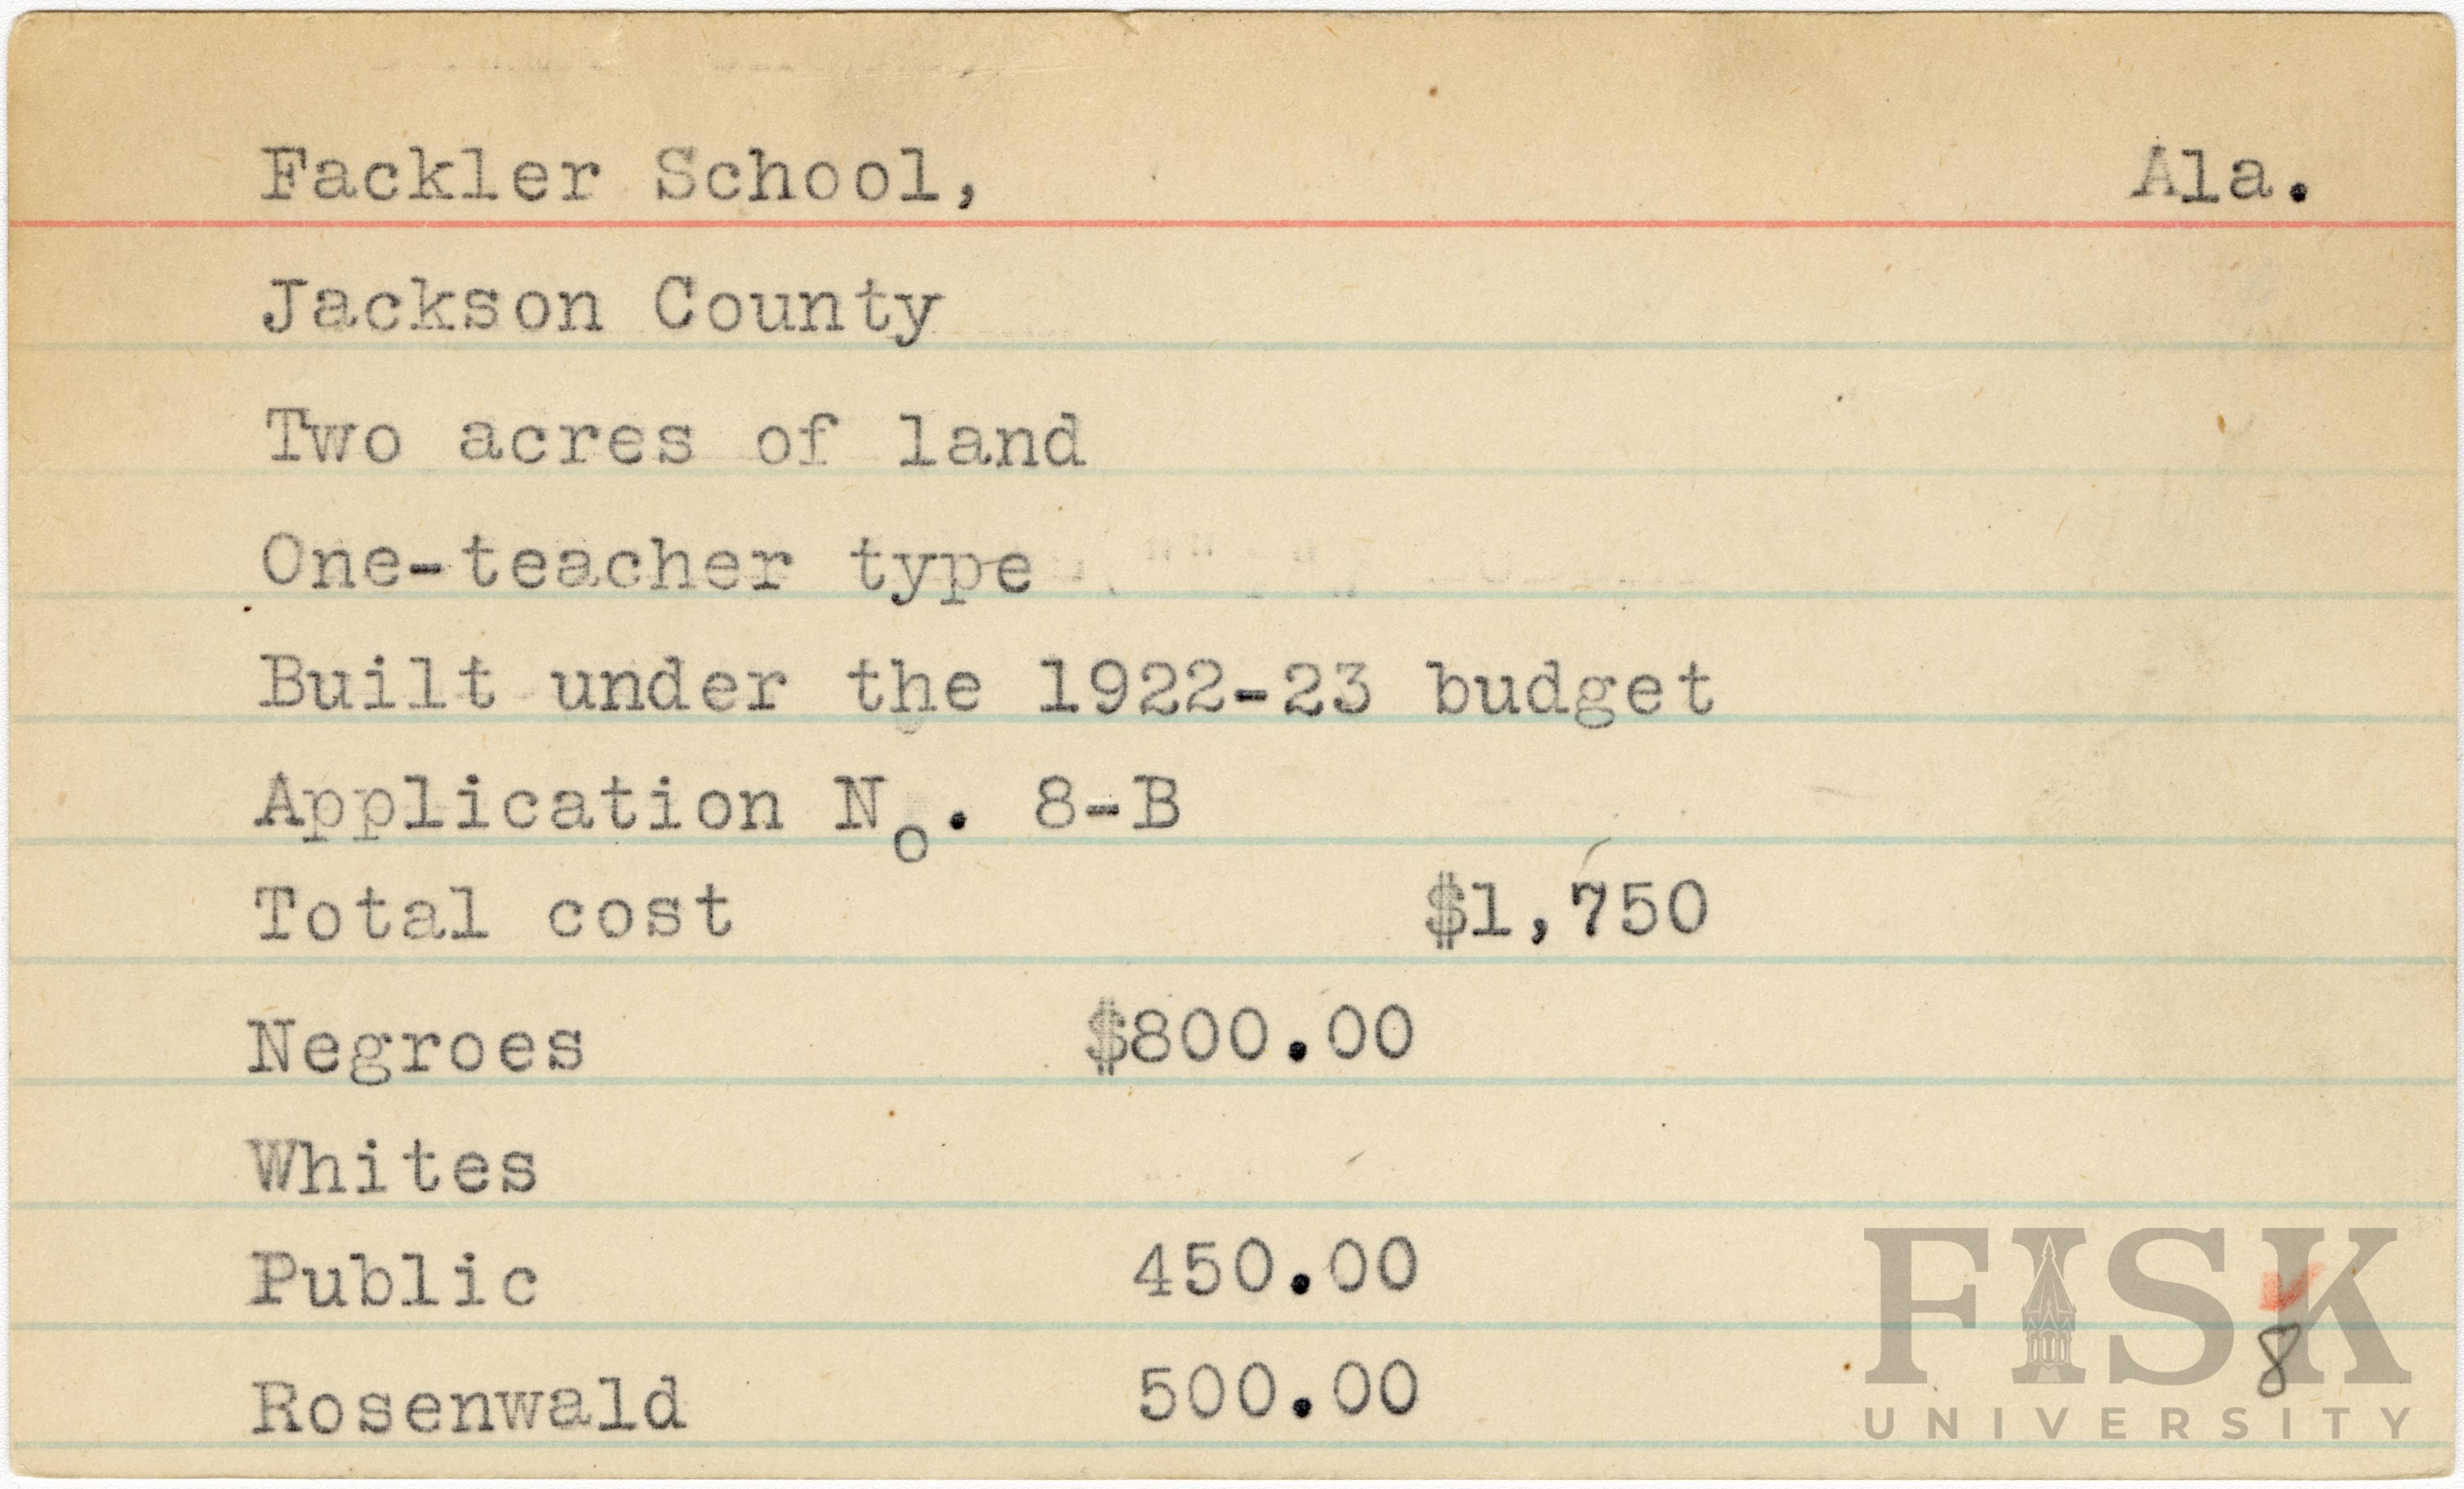 Fackler School, Ala.
Jackson County
Two acres of land
One-teacher type
Built under the 1922-23 budget
Application No. 8-B
Total cost $1,750
Negroes $800.00
Whites
Public 450.00
Rosenwald 500.00
8
FISK
UNIVERSITY